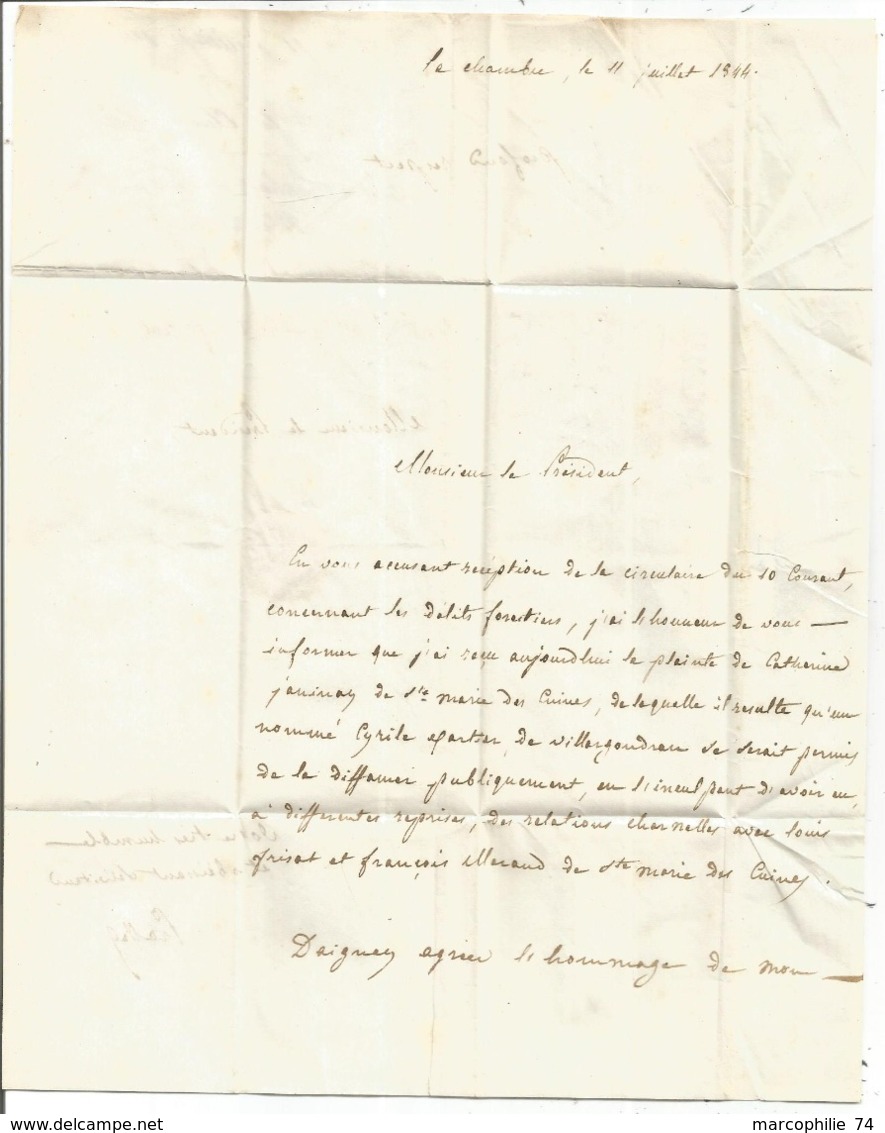 la chambre, le 11 juillet 1844.
Profond respect
Monsieur le Président
Monsieur le Président,
En vous accusant réception de la circulaire du 10 Courant,
concernant les délits forestiers, j'ai l'honneur de vous —
informer que j'ai reçu aujourdhui la plainte de Catherine
janinay de Ste marie des Cuines, de laquelle il resulte qu'un
nommé Cyrile de villargondran se serait permis
de la diffamer publiquement, en l'inculpant d'avoir eu,
à differentes reprises, des relations charnelles avec louis
frisat et françois Meraud de Ste marie des Cuines.
Votre très humble
Daignez agréer l'hommage de mon —
marcophilie 74